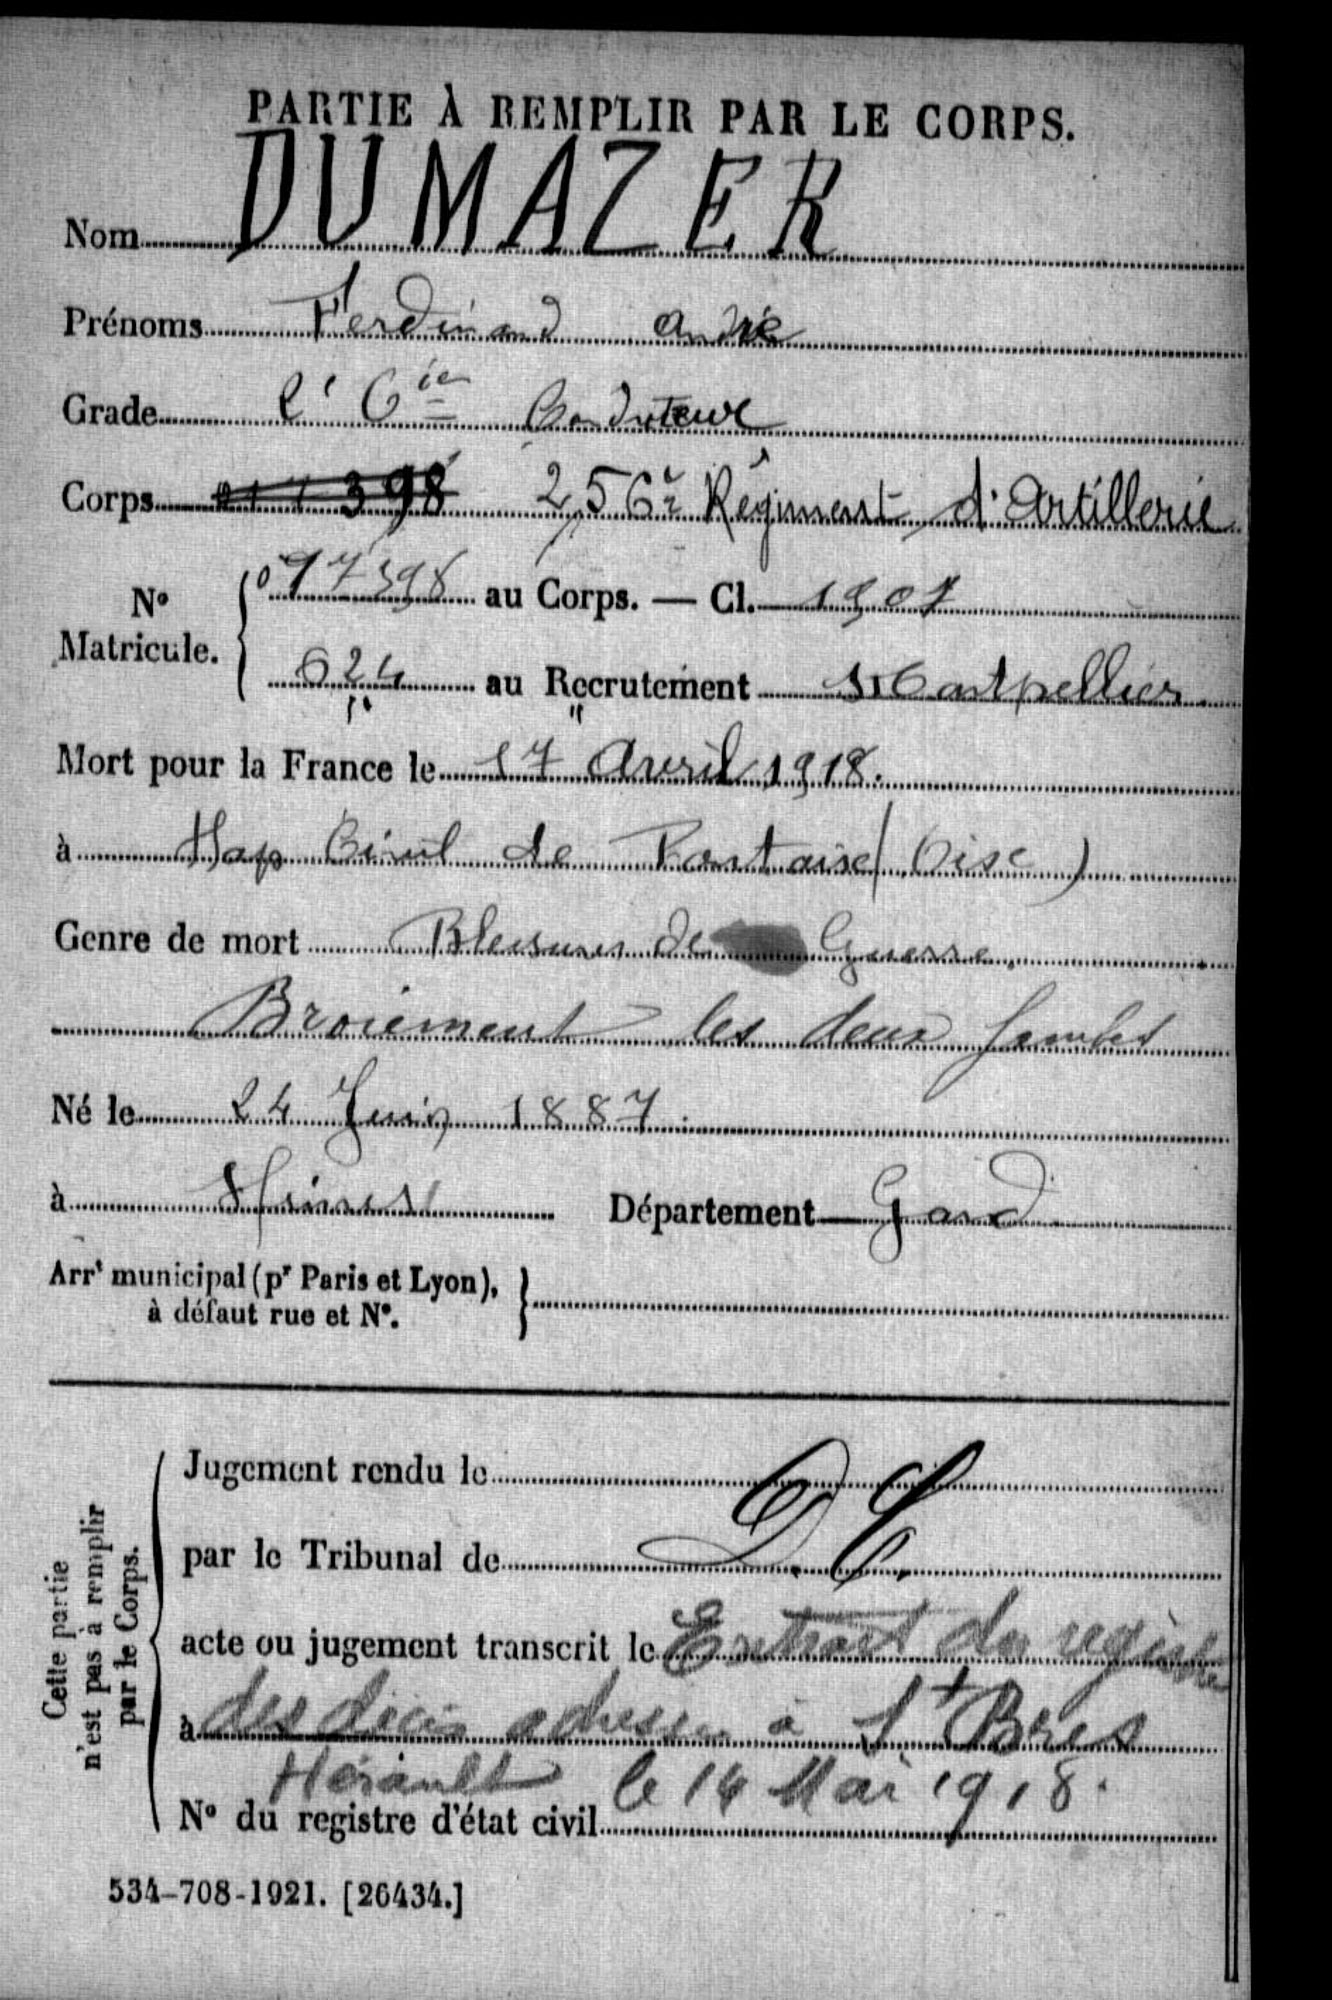 PARTIE À REMPLIR PAR LE CORPS.
Nom DUMAZER
Prénoms Ferdinand André
Grade 2e Cie Conducteur
Corps 398 256e Régiment d'Artillerie
N° Matricule. 017398 au Corps. — Cl. 1907
624 au Recrutement Montpellier
Mort pour la France le 17 Avril 1918.
à Hop Civil de Pontoise (Oise)
Genre de mort Blessures de Guerre
Broiement les deux jambes
Né le 24 Juin 1887.
à Nîmes Département Gard
Arrt municipal (pr Paris et Lyon),
à défaut rue et N°.
Cette partie
n'est pas à remplir
par le Corps.
Jugement rendu le
par le Tribunal de D.C.
acte ou jugement transcrit le Extrait du registre
à des décès adressé à St Bres
Hérault le 14 Mai 1918.
N° du registre d'état civil
534-708-1921. [26434.]